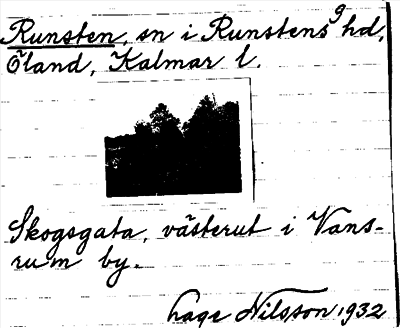 Runsten, sn i Runstens hd,
Öland, Kalmar l.
Skogsgata, västerut i Vans-
rum by.
Lage Nilsson 1932